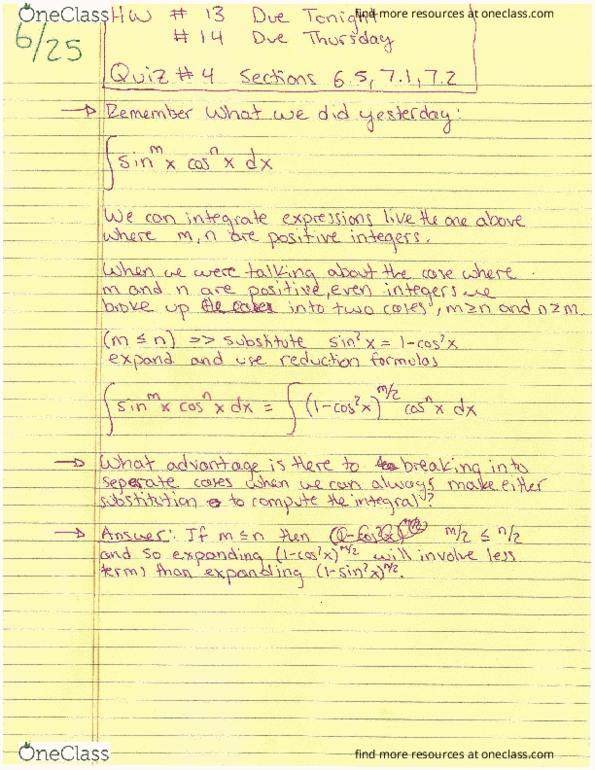 OneClass
find more resources at oneclass.com
6/25
HW # 13 Due Tonight
# 14 Due Thursday
Quiz # 4 Sections 6.5, 7.1, 7.2
→ Remember what we did yesterday:
∫ sin^m x cos^n x dx
We can integrate expressions live the one above
where m, n are positive integers.
When we were talking about the case where
m and n are positive, even integers we
broke up into two cases, m≥n and n≥m.
(m ≤ n) => substitute sin²x = 1-cos²x
expand and use reduction formulas
∫ sin^m x cos^n x dx = ∫ (1-cos²x)^m/2 cos^n x dx
→ What advantage is there to breaking into
seperate cases when we can always make either
substitution to compute the integral?
→ Answer: If m ≤ n then m/2 ≤ n/2
and so expanding (1-cos²x)^m/2 will involve less
terms than expanding (1-sin²x)^n/2.
OneClass
find more resources at oneclass.com